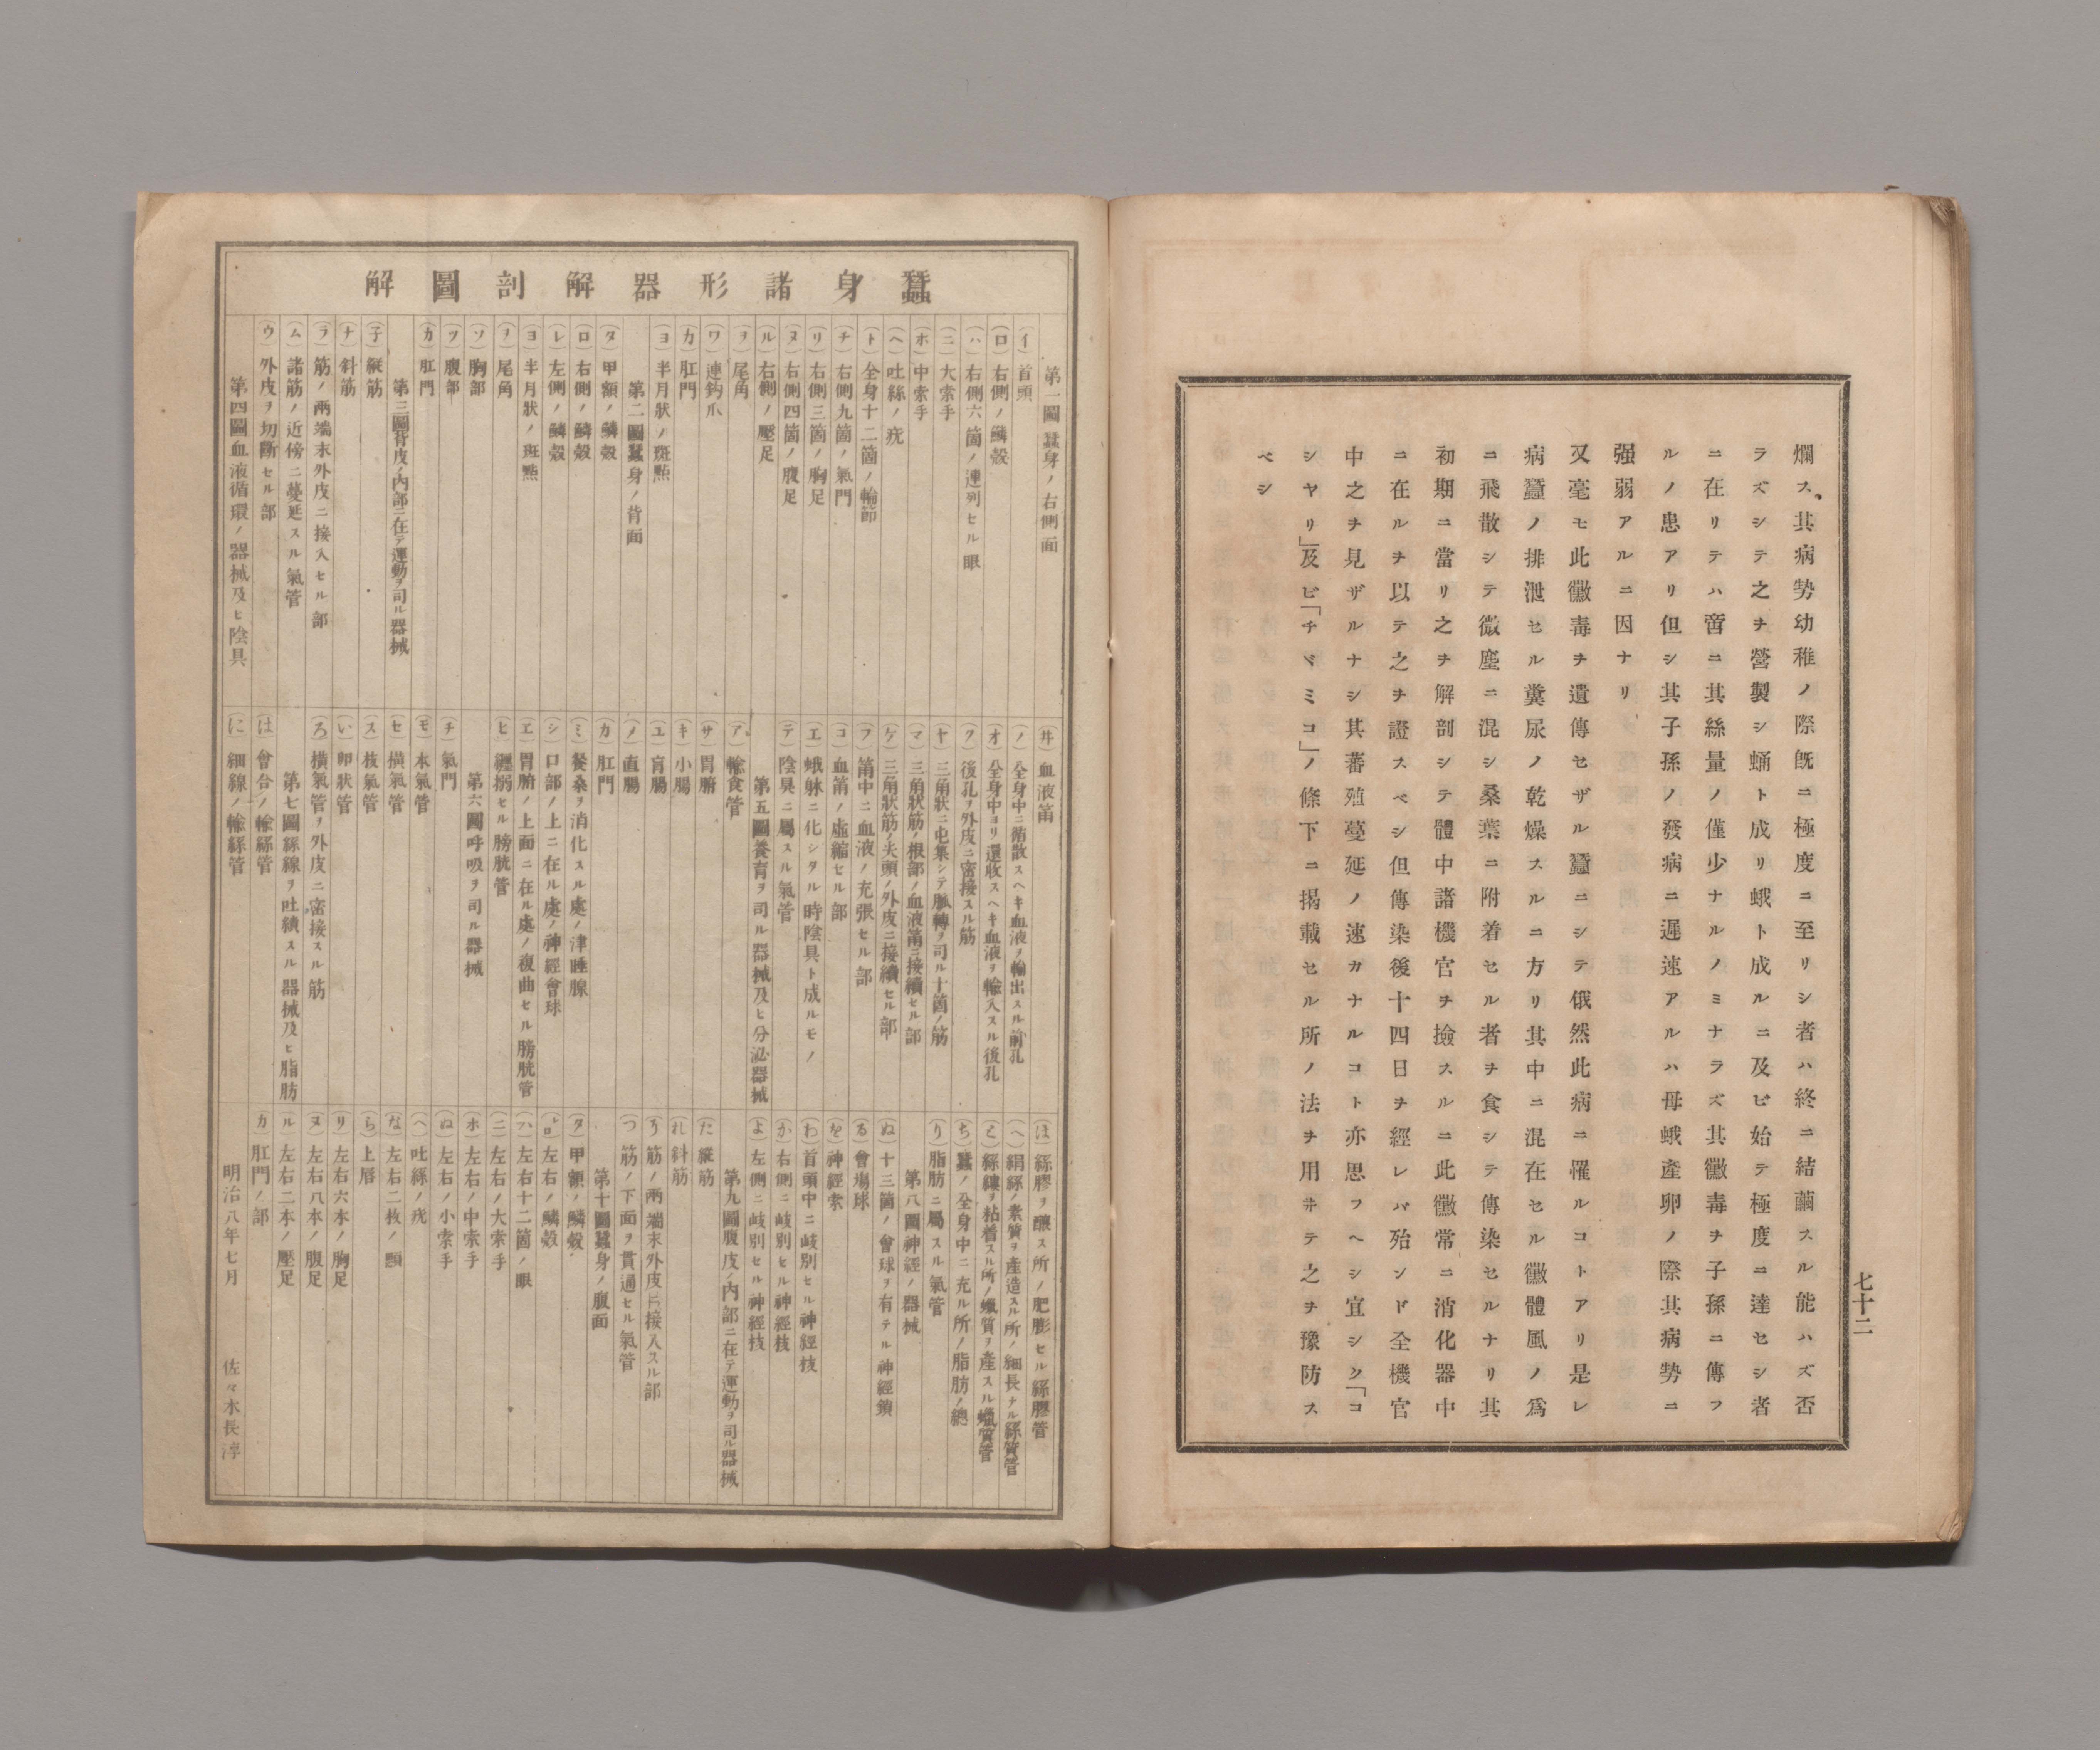 七十二
爛ス其病勢幼稚ノ際既ニ極度ニ至リシ者ハ終ニ結繭スル能ハズ否
ラズシテ之ヲ營製シ蛹ト成リ蛾ト成ルニ及ビ始テ極度ニ達セシ者
ニ在リテハ啻ニ其絲量ノ僅少ナルノミナラズ其黴毒ヲ子孫ニ傳フ
ルノ患アリ但シ其子孫ノ發病ニ遲速アルハ母蛾產卵ノ際其病勢ニ
强弱アルニ因ナリ
又毫モ此黴毒ヲ遺傳セザル蠶ニシテ俄然此病ニ罹ルコトアリ是レ
病蠶ノ排泄セル糞尿ノ乾燥スルニ方リ其中ニ混在セル黴體風ノ爲
ニ飛散シテ微塵ニ混シ桑葉ニ附着セル者ヲ食シテ傳染セルナリ其
初期ニ當リ之ヲ解剖シテ體中諸機官ヲ撿スルニ此黴常ニ消化器中
ニ在ルヲ以テ之ヲ證スベシ但傳染後十四日ヲ經レバ殆ンド全機官
中之ヲ見ザルナシ其蕃殖蔓延ノ速カナルコト亦思フヘシ宜シク「コ
シヤリ」及ビ「チヾミコ」ノ條下ニ揭載セル所ノ法ヲ用ヰテ之ヲ豫防ス
ベシ
蠶身諸形器解剖圖解
第一圖蠶身ノ右側面
(イ)首頭
(ロ)右側ノ鱗殼
(ハ)右側六箇ノ連列セル眼
(ニ)大索手
(ホ)中索手
(ヘ)吐絲ノ疣
(ト)全身十二箇ノ輪節
(チ)右側九箇ノ氣門
(リ)右側三箇ノ胸足
(ヌ)右側四箇ノ腹足
(ル)右側ノ壓足
(ヲ)尾角
(ワ)連鈎爪
(カ)肛門
(ヨ)半月狀ノ斑點
第二圖蠶身ノ背面
(タ)甲額ノ鱗殼
(ロ)右側ノ鱗殼
(レ)左側ノ鱗殼
(ヨ)半月狀ノ斑點
(ヲ)尾角
(ソ)胸部
(ツ)腹部
(カ)肛門
第三圖背皮ノ內部ニ在テ運動ヲ司ル器械
(子)縱筋
(ナ)斜筋
(ラ)筋ノ兩端末外皮ニ接入セル部
(ム)諸筋ノ近傍ニ蔓延スル氣管
(ウ)外皮ヲ切斷セル部
第四圖血液循環ノ器械及ヒ陰具
(井)血液筩
(ノ)全身中ニ循散スヘキ血液ヲ輸出スル前孔
(オ)全身中ヨリ還收スヘキ血液ヲ輸入スル後孔
(ク)後孔ヲ外皮ニ密接スル筋
(ヤ)三角狀ニ屯集シテ脈轉ヲ司ル十箇ノ筋
(マ)三角狀筋ノ根部ノ血液筩ニ接續セル部
(ケ)三角狀筋ノ尖頭ノ外皮ニ接續セル部
(フ)筩中ニ血液ノ充張セル部
(コ)血筩ノ虛縮セル部
(エ)蛾躰ニ化シタル時陰具ト成ルモノ
(テ)陰具ニ屬スル氣管
第五圖養育ヲ司ル器械及ヒ分泌器械
(ア)輸食管
(サ)胃腑
(キ)小腸
(ユ)盲腸
(メ)直腸
(カ)肛門
(ミ)餐桑ヲ消化スル處ノ津唾腺
(シ)口部ノ上ニ在ル處ノ神經會球
(エ)胃腑ノ上面ニ在ル處ノ複曲セル膀胱管
(ヒ)纒搦セル膀胱管
第六圖呼吸ヲ司ル器械
(チ)氣門
(モ)本氣管
(セ)橫氣管
(ス)枝氣管
(い)卵狀管
(ろ)橫氣管ヲ外皮ニ密接スル筋
第七圖絲線ヲ吐績スル器械及ヒ脂肪
(は)會合ノ輸絲管
(に)細線ノ輸絲管
(ほ)絲膠ヲ釀ス所ノ肥膨セル絲膠管
(へ)絹絲ノ素質ヲ產造スル所ノ細長ナル絲質管
(と)絲縷ヲ粘着スル所ノ蠟質ヲ產スル蠟質管
(ち)蠶ノ全身中ニ充ル所ノ脂肪ノ總
(り)脂肪ニ屬スル氣管
第八圖神經ノ器械
(ぬ)十三箇ノ會球ヲ有テル神經鎖
(る)會塲球
(を)神經索
(わ)首頭中ニ岐別セル神經枝
(か)右側ニ岐別セル神經枝
(よ)左側ニ岐別セル神經枝
第九圖腹皮ノ內部ニ在テ運動ヲ司ル器械
(た)縱筋
(れ)斜筋
(そ)筋ノ兩端末外皮ニ接入スル部
(つ)筋ノ下面ヲ貫通セル氣管
第十圖蠶身ノ腹面
(タ)甲額ノ鱗殼
(レロ)左右ノ鱗殼
(ハ)左右十二箇ノ眼
(ニ)左右ノ大索手
(ホ)左右ノ中索手
(ぬ)左右ノ小索手
(ヘ)吐絲ノ疣
(な)左右二枚ノ顋
(ら)上唇
(リ)左右六本ノ胸足
(ヌ)左右八本ノ腹足
(ル)左右二本ノ壓足
(カ)肛門ノ部
明治八年七月 佐々木長淳